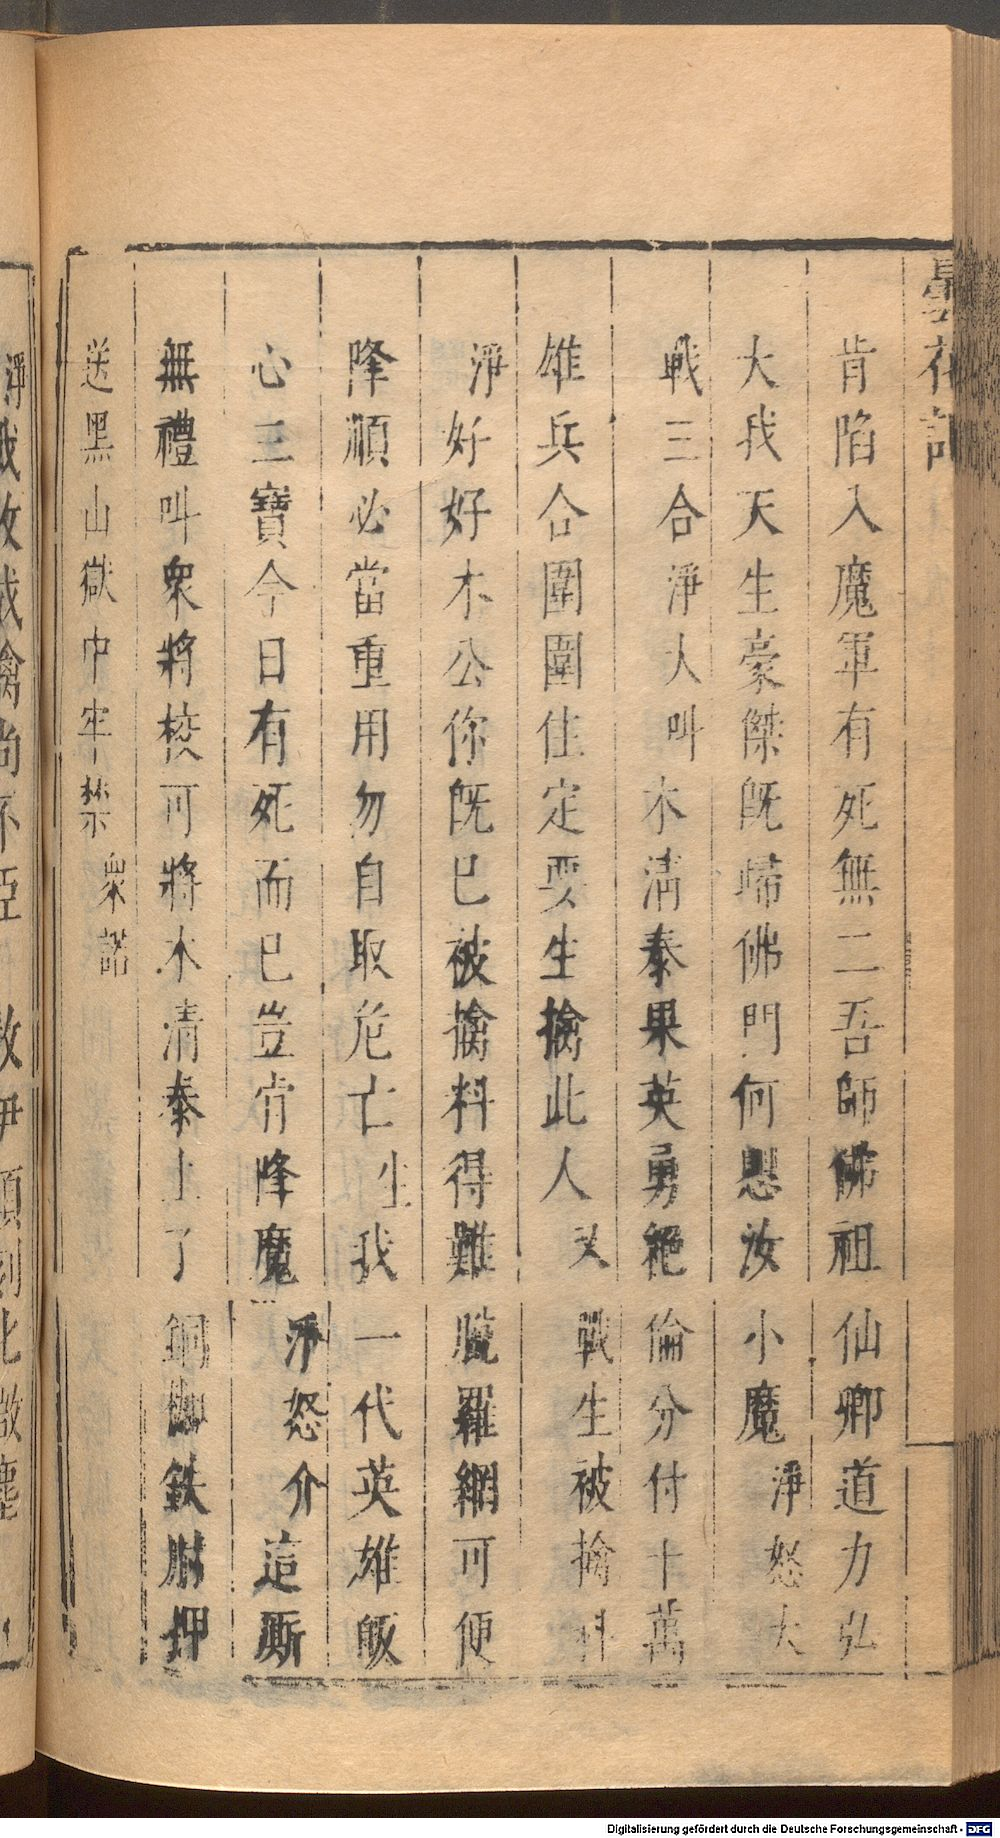 曇花記
肯陷入魔軍有死無二吾師佛祖仙卿道力弘
大我天生豪傑旣歸佛門何懸汝小魔淨怒大
戰三合淨人叫木清泰果英勇絕倫分付十萬
雄兵合圍圍住定要生擒此人又戰生被擒科
淨好好木公你旣巳被擒料得難脫羅網可便
降順必當重用勿自取危亡生我一代英雄皈
心三寶今日有死而巳豈肯降魔淨怒介這厮
無禮叫衆將校可將木清泰上了銅枷鉄肘押
送黑山獄中牢禁衆諾
Digitalisierung gefördert durch die Deutsche Forschungsgemeinschaft - DFG